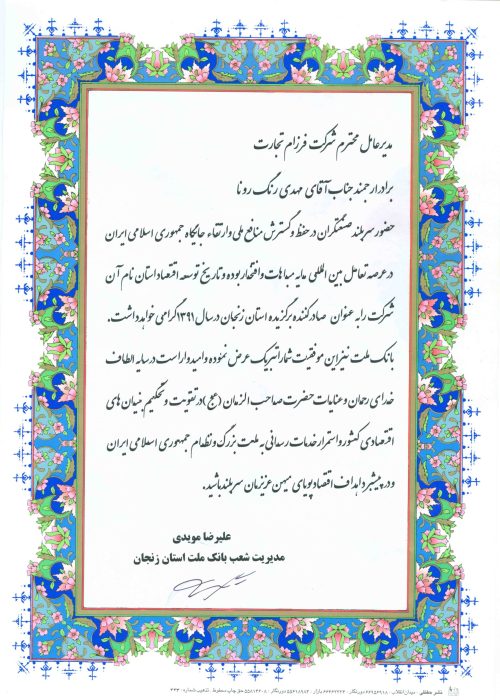 مدیرعامل محترم شرکت فرزام تجارت
برادر ارجمند جناب آقای مهدی رنگ رونا
حضور سربلند صنعتگران در حفظ و گسترش منافع ملی و ارتقاء جایگاه جمهوری اسلامی ایران
در عرصه تعامل بین المللی مایه مباهات و افتخار بوده و تاریخ توسعه اقتصاد استان نام آن
شرکت را به عنوان صادر کننده برگزیده استان زنجان در سال ۱۳۹۱ گرامی خواهد داشت.
بانک ملت نیز این موفقیت شما را تبریک عرض نموده و امیدوار است در سایه الطاف
خدای رحمان و عنایات حضرت صاحب الزمان (عج) در تقویت و تحکیم بنیان های
اقتصادی کشور و استمرار خدمات رسانی به ملت بزرگ و نظام جمهوری اسلامی ایران
و در پیشبرد اهداف اقتصاد پویای میهن عزیزمان سربلند باشید.
علیرضا مویدی
مدیریت شعب بانک ملت استان زنجان